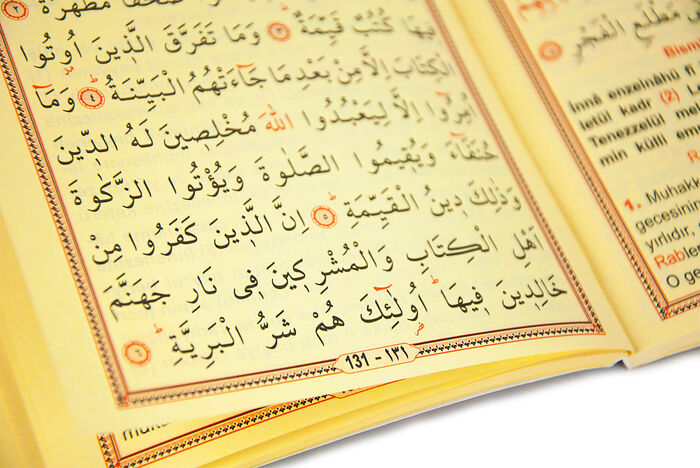 صُحُفًا مُطَهَّرَةً ﴿٢﴾
فِيهَا كُتُبٌ قَيِّمَةٌ ﴿٣﴾ وَمَا تَفَرَّقَ الَّذِينَ اُوتُوا
الْكِتَابَ اِلَّا مِنْ بَعْدِ مَا جَاءَتْهُمُ الْبَيِّنَةُ ﴿٤﴾ وَمَا
اُمِرُوا اِلَّا لِيَعْبُدُوا اللّٰهَ مُخْلِصِينَ لَهُ الدِّينَ
حُنَفَاءَ وَيُقِيمُوا الصَّلٰوةَ وَيُؤْتُوا الزَّكٰوةَ
وَذٰلِكَ دِينُ الْقَيِّمَةِ ﴿٥﴾ اِنَّ الَّذِينَ كَفَرُوا مِنْ
اَهْلِ الْكِتَابِ وَالْمُشْرِكِينَ فِى نَارِ جَهَنَّمَ
خَالِدِينَ فِيهَا اُولٰئِكَ هُمْ شَرُّ الْبَرِيَّةِ ﴿٦﴾
131 - ١٣١
مَطْلَعِ الْفَجْرِ
İnnâ enzelnâhü
letül kadr (2)
Tenezzelül
min külli
1. Muhakk
gecesini
yırlıdır.
Rab
O ge